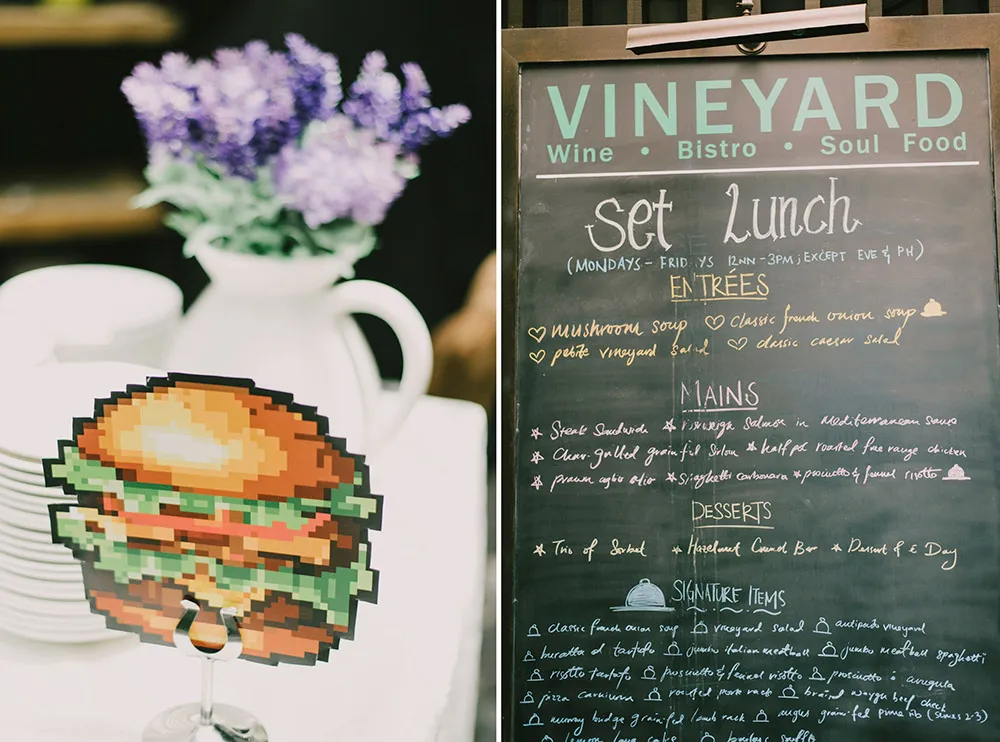 VINEYARD
Wine • Bistro • Soul Food
Set Lunch
(MONDAYS - FRID YS 12NN - 3PM; EXCEPT EVE & PH)
ENTRÉES
mushroom soup classic french onion soup
petite vineyard salad classic caesar salad
MAINS
Steak Sandwich Norwegian Salmon in Mediterranean sauce
Char-grilled grain fed Sirloin half pd roasted free range chicken
prawn aglio olio Spaghetti carbonara prosciutto & fennel risotto
DESSERTS
Trio of Sorbet Hazelnut Caramel Bar Dessert of Day
SIGNATURE ITEMS
classic french onion soup vineyard salad antipasto vineyard
buratta al tartufo jumbo italian meatball jumbo meatball spaghetti
risotto tartufo prosciutto & fennel risotto prosciutto arugula
pizza carnivora roasted pork rack braised wagyu beef cheek
murray bridge grain-fed lamb rack angus grain-fed prime rib (serves 2-3)
lemon lava cake